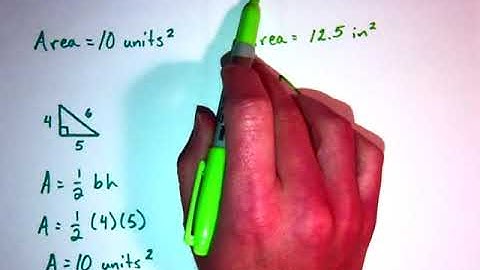 Area = 10 units²
rea = 12.5 in²
4
6
5
A = 1/2 bh
A = 1/2 (4)(5)
A = 10 units²